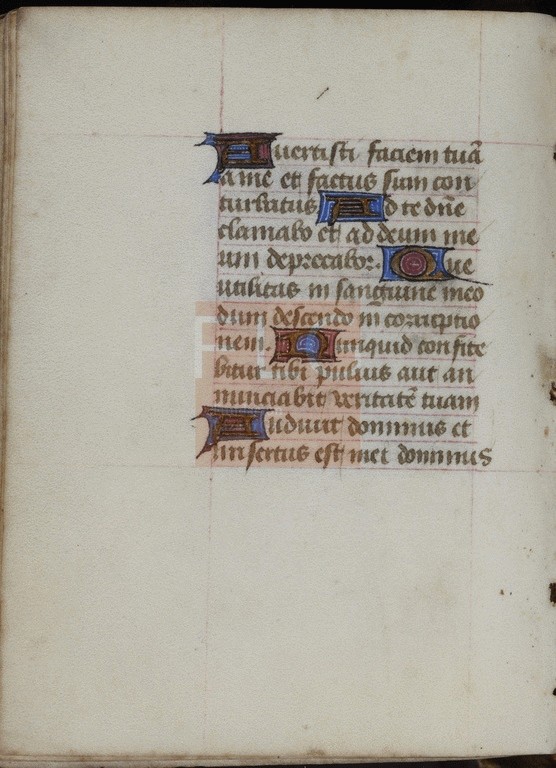 Auertisti faciem tuā
a me et factus sum con
turbatus Ad te dn̄e
clamabo et ad deum me
um deprecabor. Que
utilitas in sanguine meo
dum descendo in corruptio
nem. Nunquid confite
bitur tibi puluis aut an
nunciabit veritatē tuam
Audiuit dominus et
misertus est mei dominus